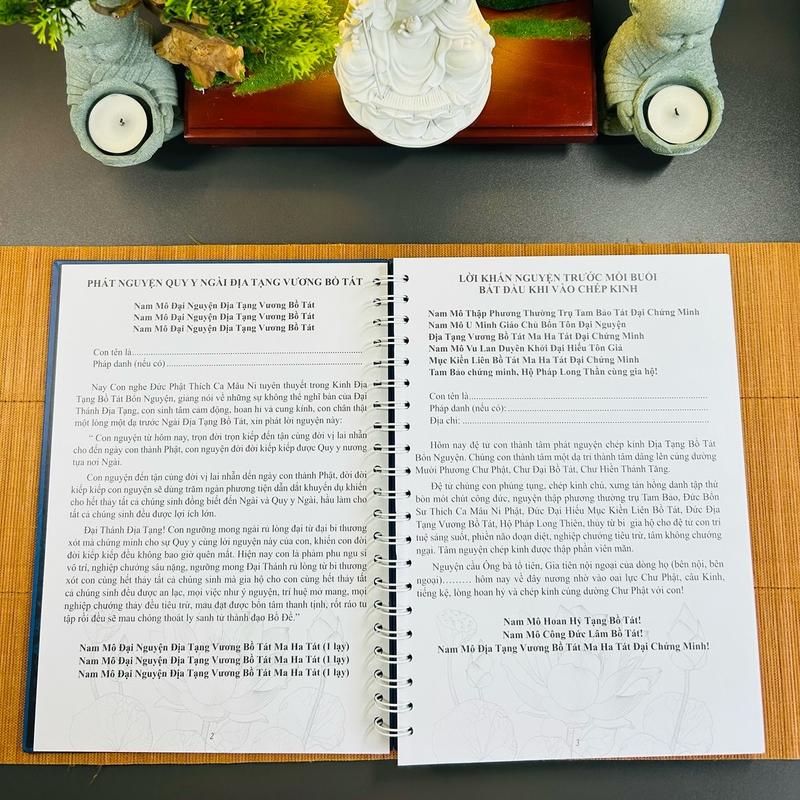 PHÁT NGUYỆN QUY Y NGÀI ĐỊA TẠNG VƯƠNG BỒ TÁT
Nam Mô Đại Nguyện Địa Tạng Vương Bồ Tát
Nam Mô Đại Nguyện Địa Tạng Vương Bồ Tát
Nam Mô Đại Nguyện Địa Tạng Vương Bồ Tát
Con tên là
Pháp danh (nếu có)
Nay Con nghe Đức Phật Thích Ca Mâu Ni tuyên thuyết trong Kinh Địa
Tạng Bồ Tát Bổn Nguyện, giảng nói về những sự không thể nghĩ bàn của Đại
Thánh Địa Tạng, con sinh tâm cảm động, hoan hỉ và cung kính, con chân thật
một lòng một dạ trước Ngài Địa Tạng Bồ Tát, xin phát lời nguyện này:
“ Con nguyện từ hôm nay, trọn đời trọn kiếp đến tận cùng đời vị lai nhẫn
cho đến ngày con thành Phật, con nguyện đời đời kiếp kiếp được Quy y nương
tựa nơi Ngài.
Con nguyện đến tận cùng đời vị lai nhẫn đến ngày con thành Phật, đời đời
kiếp kiếp con nguyện sẽ dùng trăm ngàn phương tiện dẫn dắt khuyến dụ khiến
cho hết thảy tất cả chúng sinh đồng biết đến Ngài và Quy y Ngài, hầu làm cho
tất cả chúng sinh đều được lợi ích lớn.
Đại Thánh Địa Tạng! Con ngưỡng mong ngài rủ lòng đại từ đại bi thương
xót mà chứng minh cho sự Quy y cùng lời nguyện này của con, khiến con đời
đời kiếp kiếp đều không bao giờ quên mất. Hiện nay con là phàm phu ngu si
vô trí, nghiệp chướng sâu nặng, ngưỡng mong Đại Thánh rủ lòng từ bi thương
xót con cùng hết thảy tất cả chúng sinh mà gia hộ cho con cùng hết thảy tất cả
chúng sinh đều được an lạc, mọi việc như ý nguyện, trí huệ mở mang, mọi
nghiệp chướng thảy đều tiêu trừ, mau đạt được bổn tâm thanh tịnh, rốt ráo tu
tập rồi đều sẽ mau chóng thoát ly sanh tử thành đạo Bồ Đề.”
Nam Mô Đại Nguyện Địa Tạng Vương Bồ Tát Ma Ha Tát (1 lạy)
Nam Mô Đại Nguyện Địa Tạng Vương Bồ Tát Ma Ha Tát (1 lạy)
Nam Mô Đại Nguyện Địa Tạng Vương Bồ Tát Ma Ha Tát (1 lạy)
2
LỜI KHẤN NGUYỆN TRƯỚC MỖI BUỔI
BẮT ĐẦU KHI VÀO CHÉP KINH
Nam Mô Thập Phương Thường Trụ Tam Bảo Tát Đại Chứng Minh
Nam Mô U Minh Giáo Chủ Bổn Tôn Đại Nguyện
Địa Tạng Vương Bồ Tát Ma Ha Tát Đại Chứng Minh
Nam Mô Vu Lan Duyên Khởi Đại Hiếu Tôn Giả
Mục Kiền Liên Bồ Tát Ma Ha Tát Đại Chứng Minh
Tam Bảo chứng minh, Hộ Pháp Long Thần cùng gia hộ!
Con tên là
Pháp danh (nếu có):
Địa chỉ:
Hôm nay đệ tử con thành tâm phát nguyện chép kinh Địa Tạng Bồ Tát
Bổn Nguyện. Chúng con thành tâm một dạ trí thành tâm dâng lên cúng dường
Mười Phương Chư Phật, Chư Đại Bồ Tát, Chư Hiền Thánh Tăng.
Đệ tử chúng con phúng tụng, kính chú, xưng tán hồng danh tập thử
bòn mót chút công đức, nguyện thập phương thường trụ Tam Bảo, Đức Bổn
Sư Thích Ca Mâu Ni Phật, Đức Đại Hiếu Mục Kiền Liên Bồ Tát, Đức Địa
Tạng Vương Bồ Tát, Hộ Pháp Long Thiên, thùy từ bi gia hộ cho đệ tử con trí
tuệ sáng suốt, phiền não đoạn diệt, nghiệp chướng tiêu trừ, tâm không chướng
ngại. Tâm nguyện chép kinh được thập phần viên mãn.
Nguyện cầu Ông bà tổ tiên, Gia tiên nội ngoại của dòng họ (bên nội, bên
ngoại)......... hôm nay về đây nương nhờ vào oai lực Chư Phật, câu Kinh,
tiếng kệ, lòng hoan hỷ và chép kinh cúng dường Chư Phật với con!
Nam Mô Hoan Hỷ Tạng Bồ Tát!
Nam Mô Công Đức Lâm Bồ Tát!
Nam Mô Địa Tạng Vương Bồ Tát Ma Ha Tát Đại Chứng Minh!
3